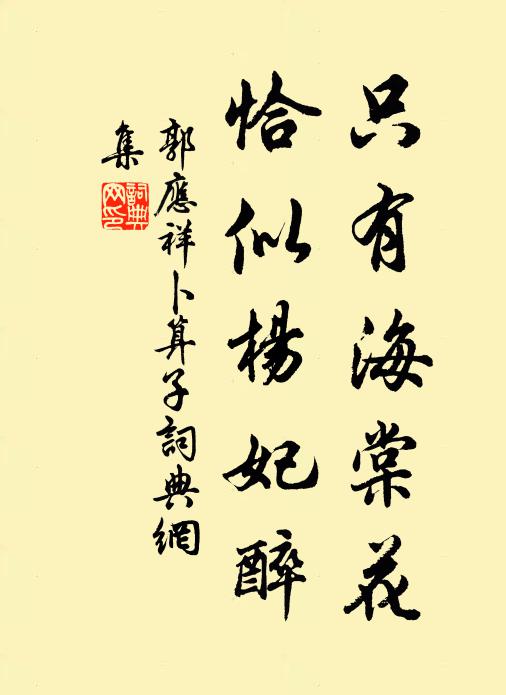 只有海棠花
恰似楊妃醉
郭應祥卜算子詞典網
集
詞典網印